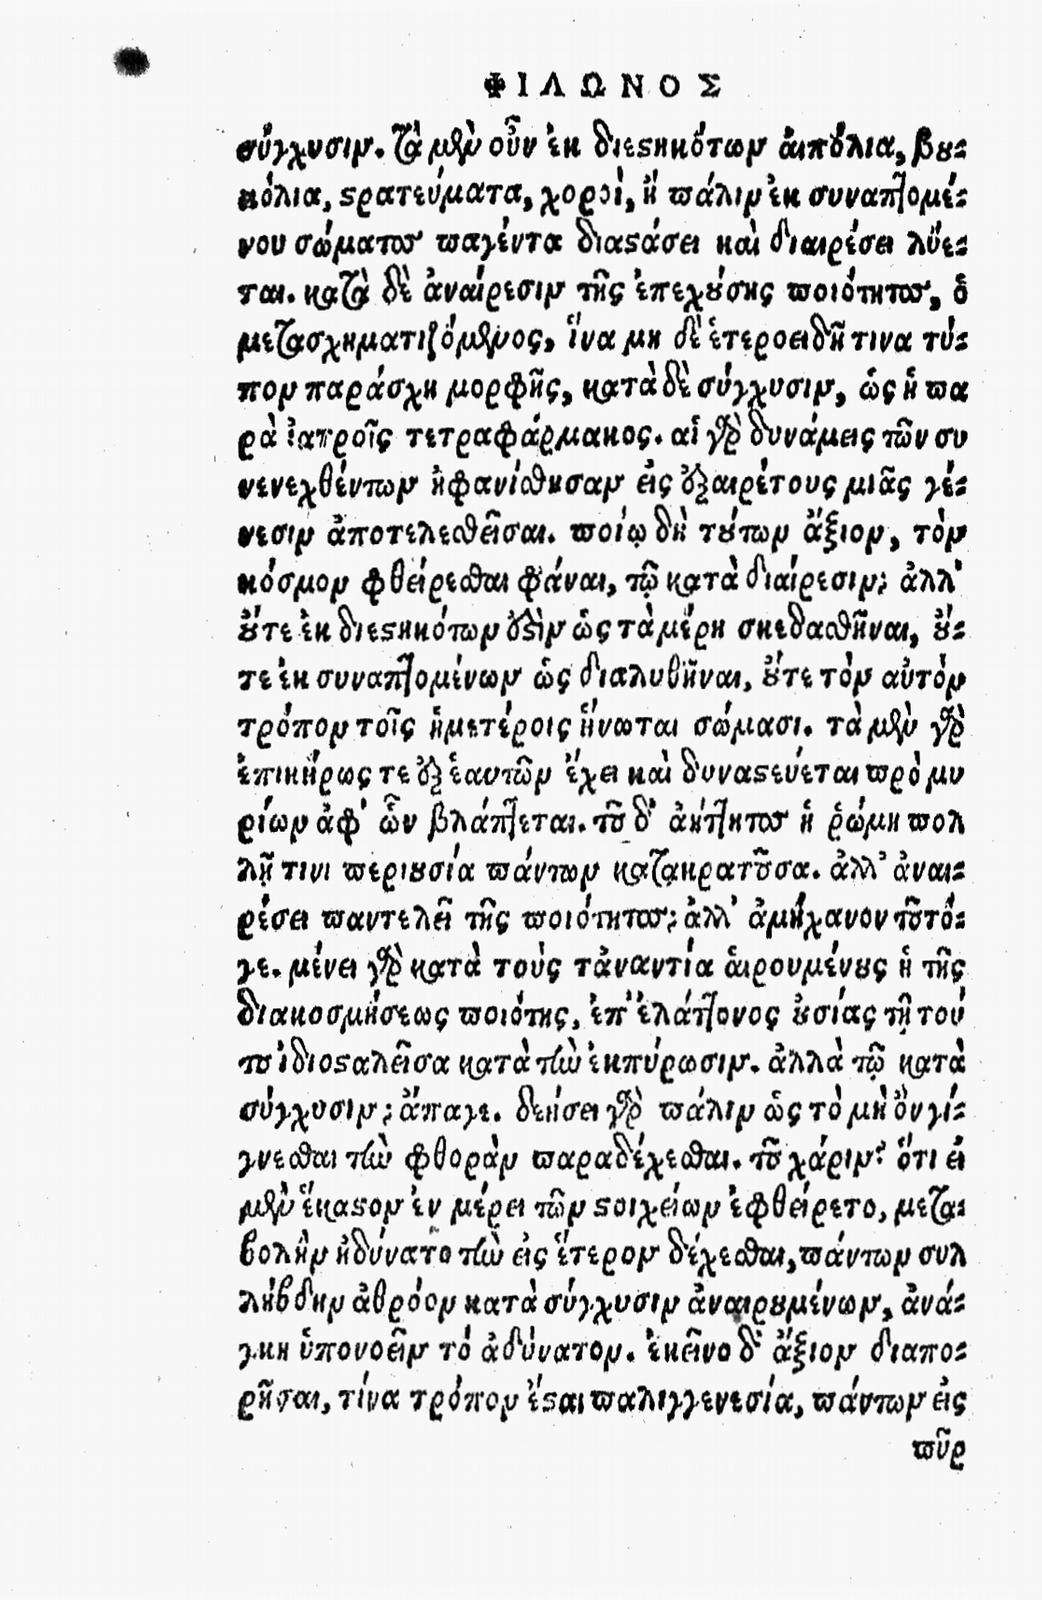 ΦΙΛΩΝΟΣ
σύγχυσιν. τὰ μὲν οὖν ἐκ διεστηκότων αἰπόλια, βου-
κόλια, στρατεύματα, χοροὶ, ἢ πάλιν ἐκ συναπτομέ-
νου σώματος παγέντα διαστάσει καὶ διαιρέσει λύε-
ται. κατὰ δὲ ἀναίρεσιν τῆς ἐπεχούσης ποιότητος, ὁ
μετασχηματιζόμενος, ἵνα μη δὲ ἑτεροειδῆ τινα τύ-
πον παράσχη μορφῆς, κατὰ δὲ σύγχυσιν, ὡς ἡ πα
ρὰ ἰατροῖς τετραφάρμακος. αἱ γὰρ δυνάμεις τῶν συ
νενεχθέντων ἠφανίσθησαν εἰς ἐξαιρέτους μιᾶς γέ-
νεσιν ἀποτελεσθεῖσαι. ποίῳ δὴ τούτων ἄξιον, τὸν
κόσμον φθείρεσθαι φάναι, τῷ κατὰ διαίρεσιν; ἀλλ'
οὔτε ἐκ διεστηκότων ἐστὶν ὡς τὰ μέρη σκεδασθῆναι, οὔ-
τε ἐκ συναπτομένων ὡς διαλυθῆναι, οὔτε τὸν αὐτὸν
τρόπον τοῖς ἡμετέροις ἥνωται σώμασι. τὰ μὲν γὰρ
ἐπικήρως τε ἐξ ἑαυτῶν ἔχει καὶ δυναστεύεται πρὸ μυ
ρίων ἀφ' ὧν βλάπτεται. τοῦ δ' ἀήττητος ἡ ῥώμη πολ
λῇ τινι περιουσία πάντων κατακρατοῦσα. ἀλλ' ἀναι-
ρέσει παντελεῖ τῆς ποιότητος; ἀλλ' ἀμήχανον τοῦτό-
γε. μένει γὰρ κατὰ τοὺς τἀναντία αἱρουμένους ἡ τῆς
διακοσμήσεως ποιότης, ἐπ' ἐλάττονος οὐσίας τῇ τού
το ἰδιοσταλεῖσα κατὰ τὴν ἐκπύρωσιν. ἀλλὰ τῷ κατὰ
σύγχυσιν; ἄπαγε. δεήσει γὰρ πάλιν ὡς τὸ μὴ ὂν γί-
γνεσθαι τὴν φθορὰν παραδέχεσθαι. τοῦ χάριν; ὅτι εἰ
μὲν ἕκαστον ἐν μέρει τῶν στοιχείων ἐφθείρετο, μετα-
βολὴν ἠδύνατο τὴν εἰς ἕτερον δέχεσθαι, πάντων συλ
λήβδην ἀθρόον κατὰ σύγχυσιν ἀναιρουμένων, ἀνά-
γκη ὑπονοεῖν τὸ ἀδύνατον. ἐκεῖνο δ' ἄξιον διαπο-
ρῆσαι, τίνα τρόπον ἔσται παλιγγενεσία, πάντων εἰς
πῦρ